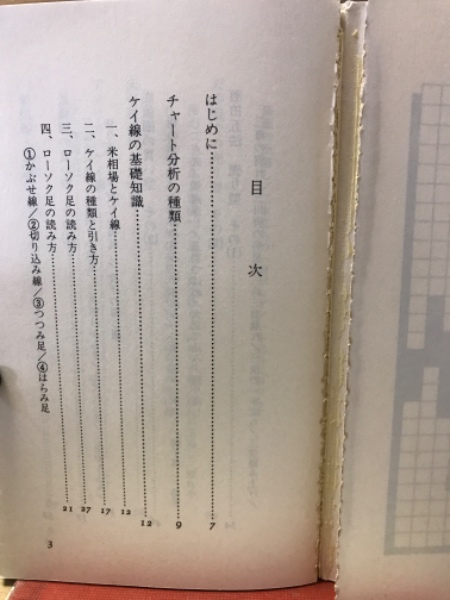 目次
はじめに……7
チャート分析の種類……9
ケイ線の基礎知識……12
一、米相場とケイ線……12
二、ケイ線の種類と引き方……17
三、ローソク足の読み方……27
四、ローソク足の読み方……21
①かぶせ線/②切り込み線/③つつみ足/④はらみ足
3